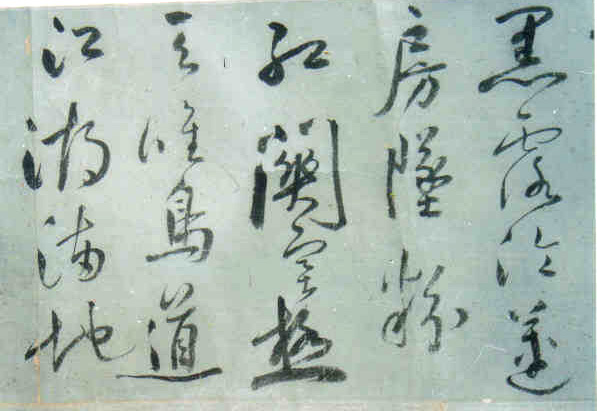 黑露冷蓮
房墜粉
紅關塞極
天唯鳥道
江湖滿地